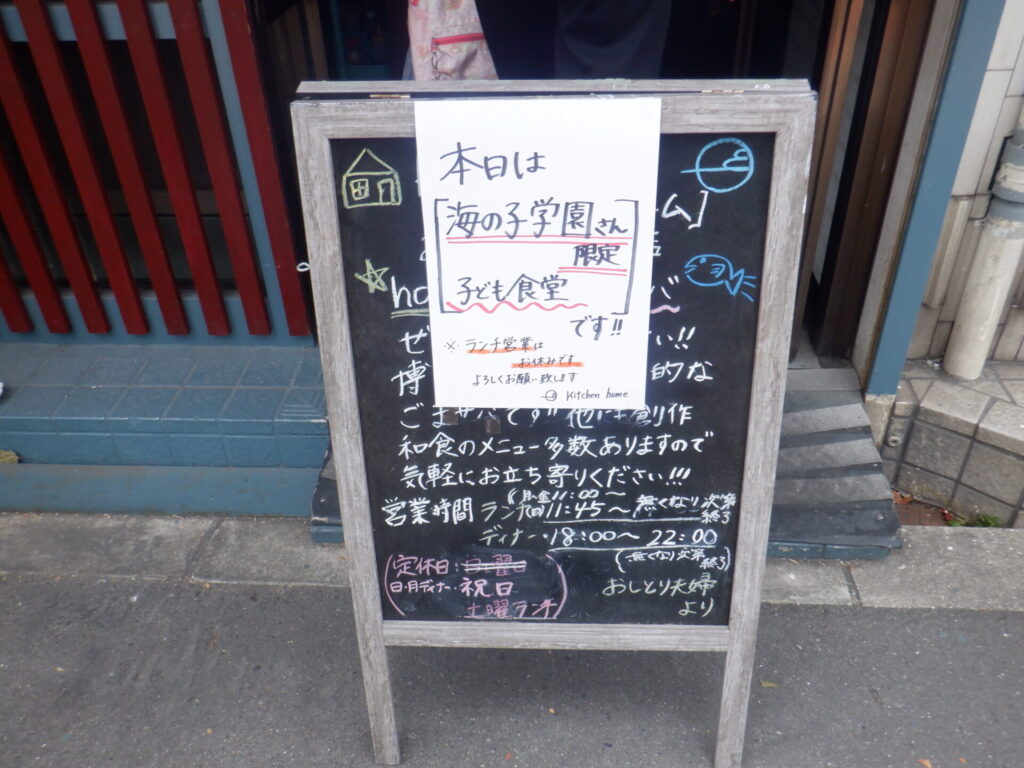 本日は
[海の子学園さん
限定
子ども食堂]
です!!
※ランチ営業は
お休みです
よろしくお願い致します
Kitchen home
ム]
ho
バ
ぜ い!!
博 的な
ごまサバです!!他にも創作
和食のメニュー多数ありますので
気軽にお立ち寄りください!!!
営業時間 ランチ 11:45〜無くなり次第
終了
月・金11:00〜
ディナー・18:00〜22:00
(無くなり次第
終了)
定休日:日曜日
日・月ディナー・祝日
土曜ランチ
おしどり夫婦
より